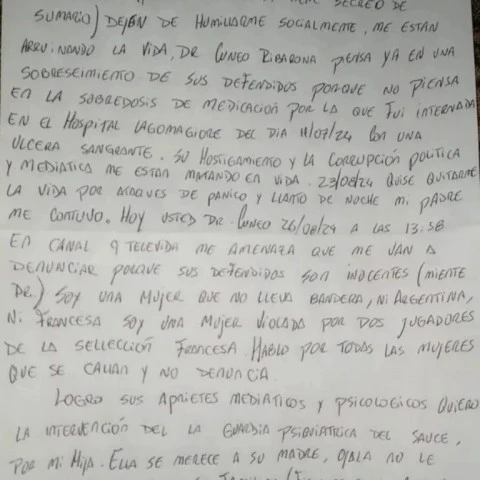 SECREO DE
SUMARIO) DEJEN DE HUMILLARME SOCIALMENTE, ME ESTAN
ARRUINANDO LA VIDA, DR CUNEO RIBARONA PIENSA YA EN UNA
SOBRESEIMIENTO DE SUS DEFENDIDOS PORQUE NO PIENSA
EN LA SOBREDOSIS DE MEDICACIÓN POR LA QUE FUI INTERNADA
EN EL HOSPITAL LAGOMAGIORE DEL DIA 11/07/24 CON UNA
ULCERA SANGRANTE. SU HOSTIGAMIENTO Y LA CORRUPCIÓN POLITICA
Y MEDIATICA ME ESTAN MATANDO EN VIDA. 23/08/24 QUISE QUITARME
LA VIDA POR ATAQUES DE PANICO Y LLANTO DE NOCHE MI PADRE
ME CONTUVO. HOY USTED DR. CUNEO 26/08/24 A LAS 13:58
EN CANAL 9 TELEVIDA ME AMENAZA QUE ME VAN A
DENUNCIAR PORQUE SUS DEFENDIDOS SON INOCENTES (MIENTE
DR.) SOY UNA MUJER QUE NO LLEVA BANDERA, NI ARGENTINA,
NI FRANCESA SOY UNA MUJER VIOLADA POR DOS JUGADORES
DE LA SELLECCIÓN FRANCESA. HABLO POR TODAS LAS MUJERES
QUE SE CALLAN Y NO DENUNCIA.
LOGRO SUS APRIETES MEDIATICOS Y PSICOLOGICOS QUIERO
LA INTERVENCIÓN DEL LA GUARDIA PSIQUIATRICA DEL SAUCE,
POR MI HIJA. ELLA SE MERECE A SU MADRE, OJALA NO LE